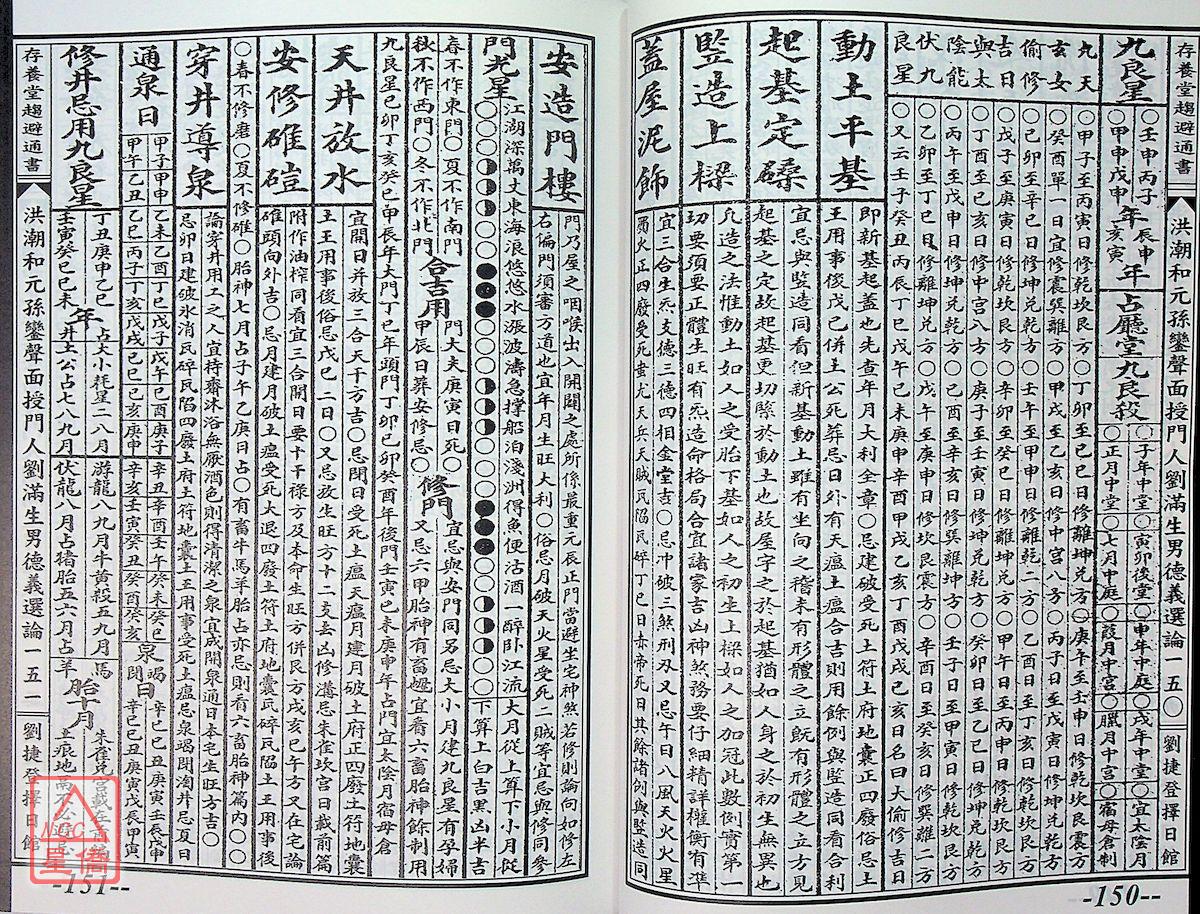 存養堂趨避通書
洪潮和元孫鑾聲面授門人劉滿生男德義選論一五〇
劉捷登擇日館
九良星
〇壬申丙子
〇甲申戊申
年
辰申
亥寅
年
占廳堂九良殺
〇子年中堂〇寅卯後堂〇申年中庭〇戌年中堂〇宜太陰月
〇正月中堂〇七月中庭〇葭月中宮〇臘月中宮〇宿母倉制
九天
玄女
偷修
吉日
與太
陰能
伏九
良星
〇甲子至丙寅日修乾坎艮方〇丁卯至己巳日修離坤兌方〇庚午至壬申日修乾坎艮震方
〇癸酉單一日宜修震巽離方〇甲戌至乙亥日修中宮八方〇丙子至丁丑
〇己卯至辛巳日修離坤兌方
〇戊子至庚寅日修乾坎艮方〇辛卯至癸巳日修
〇丁酉至己亥日修中宮八方〇庚子至
〇丙午至戊申日修坤兌乾方〇己酉至辛亥日修
〇乙卯至丁巳日修離坤兌方〇戊午至庚申日修坎艮震方〇辛酉日至癸亥日修巽離二方
〇又云壬子癸丑丙辰丁巳戊午己未庚申辛酉甲戌乙亥丁酉戊戌己亥日名曰大偷修吉日
動土平基
即新基起蓋也先查年月大利全章〇忌建破受死土符地囊正四廢俗忌土
王用事後戊己併土公死葬忌日外有天瘟土瘟合吉則用餘例與竪造同看合利
起基定磉
宜忌與竪造同看但新基動土雖有坐向之稽未有形體之立既有形體之立方見
起基之定故起基更切緊於動土也故屋字之於起基猶如人身之於初生無異也
竪造上樑
凡造之法惟動土如人之受胎下基如人之初生上樑如人之加冠此數例實第一
切要須要正體生旺有炁造命格局合宜諸家吉凶神煞務要仔細精詳權衡有準
蓋屋泥飾
宜三合生炁支德三德四相金堂吉〇忌冲破三煞刑刃又忌午日八風天火火星
獨火正四廢受死蚩尤天兵天賊瓦陷瓦碎丁巳日赤帝死日其餘諸例與竪造同
-150--
安造門樓
門乃屋之咽喉出入開闔之處所係最重元辰正門當避坐宅神煞若修則論向如修左
右偏門須審方道也宜年月生旺大利〇俗忌月破天火星受死二賊等宜忌與修同參
門光星
江湖深萬丈東海浪悠悠水漲波濤急撐船泊淺洲得魚便沽酒一醉卧江流
大月從上算下小月從
下算上白吉黑凶半吉
春不作東門〇夏不作南門
秋不作西門〇冬不作北門
合吉用
門大夫庚寅日死〇
甲辰日葬安修忌〇
修門
宜忌與安門同另忌大小月建九良星有孕婦
又忌六甲胎神有畜
宜看六畜胎神餘制用
九良星己卯丁亥癸巳甲辰年大門丁巳年頭門丁卯己卯癸酉年後門壬寅己未庚申年占門宜太陰月宿母倉
天井放水
宜開日并放三合天干方吉〇忌閉日受死土瘟天瘟月建月破土府正四廢土符地囊
土王用事後俗忌戊己二日〇〇又忌放生旺方十二支玄凶修溝忌朱雀坎宮日載前篇
安修碓磑
附作油榨同看宜三合開日要十干祿方及本命生旺方併艮方戌亥巳午方又在宅論
碓頭向外吉〇忌月建月破土瘟受死大退四廢土符土府地囊瓦碎瓦陷土王用事後
〇春不修磨〇夏不修碓〇胎神七月占子午乙庚日占〇有畜牛馬羊胎占亦忌則看六畜胎神篇内〇〇
穿井導泉
論穿井用工之人宜持齋沐浴無厭酒色則得清潔之泉宜成開泉通日本宅生旺方吉〇
忌卯日建破氷消瓦碎瓦陷四廢土府土符地囊土王用事受死土瘟忌泉竭閉淘井忌夏日
通泉日
甲子甲申
甲午乙丑
乙未乙酉丁巳戊子戊午己酉庚子
乙巳丙子丁亥戊戌己巳己亥庚申
辛丑辛酉壬午癸未癸巳
辛亥壬寅癸丑癸酉癸亥
泉
竭
閉
日
辛巳己丑庚寅壬辰戊申
辛巳己丑庚寅戊辰甲寅
修井忌用九良星
丁丑庚申乙巳
壬寅癸巳己未
年
占大小耗星二八月
井土公占七八九月
游龍八九月牛黃殺五九月
伏龍八月占猪胎五六月占
馬
羊
胎十月
存養堂趨避通書
洪潮和元孫鑾聲面授門人劉滿生男德義選論一五一
劉捷登擇日館
NCC
星僑
-151--